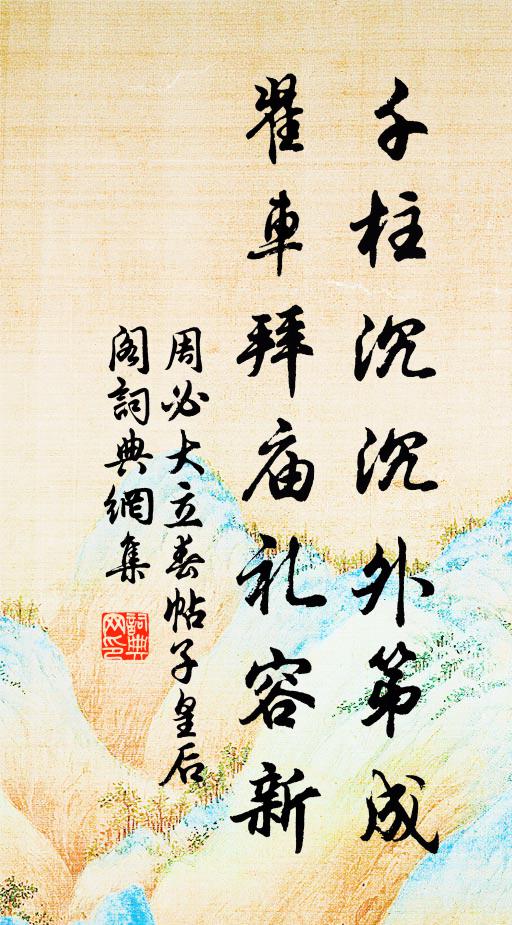 千柱沉沉外第成
翟車拜庙礼容新
周必大立春帖子皇后
阁詞典網集
詞典
网印